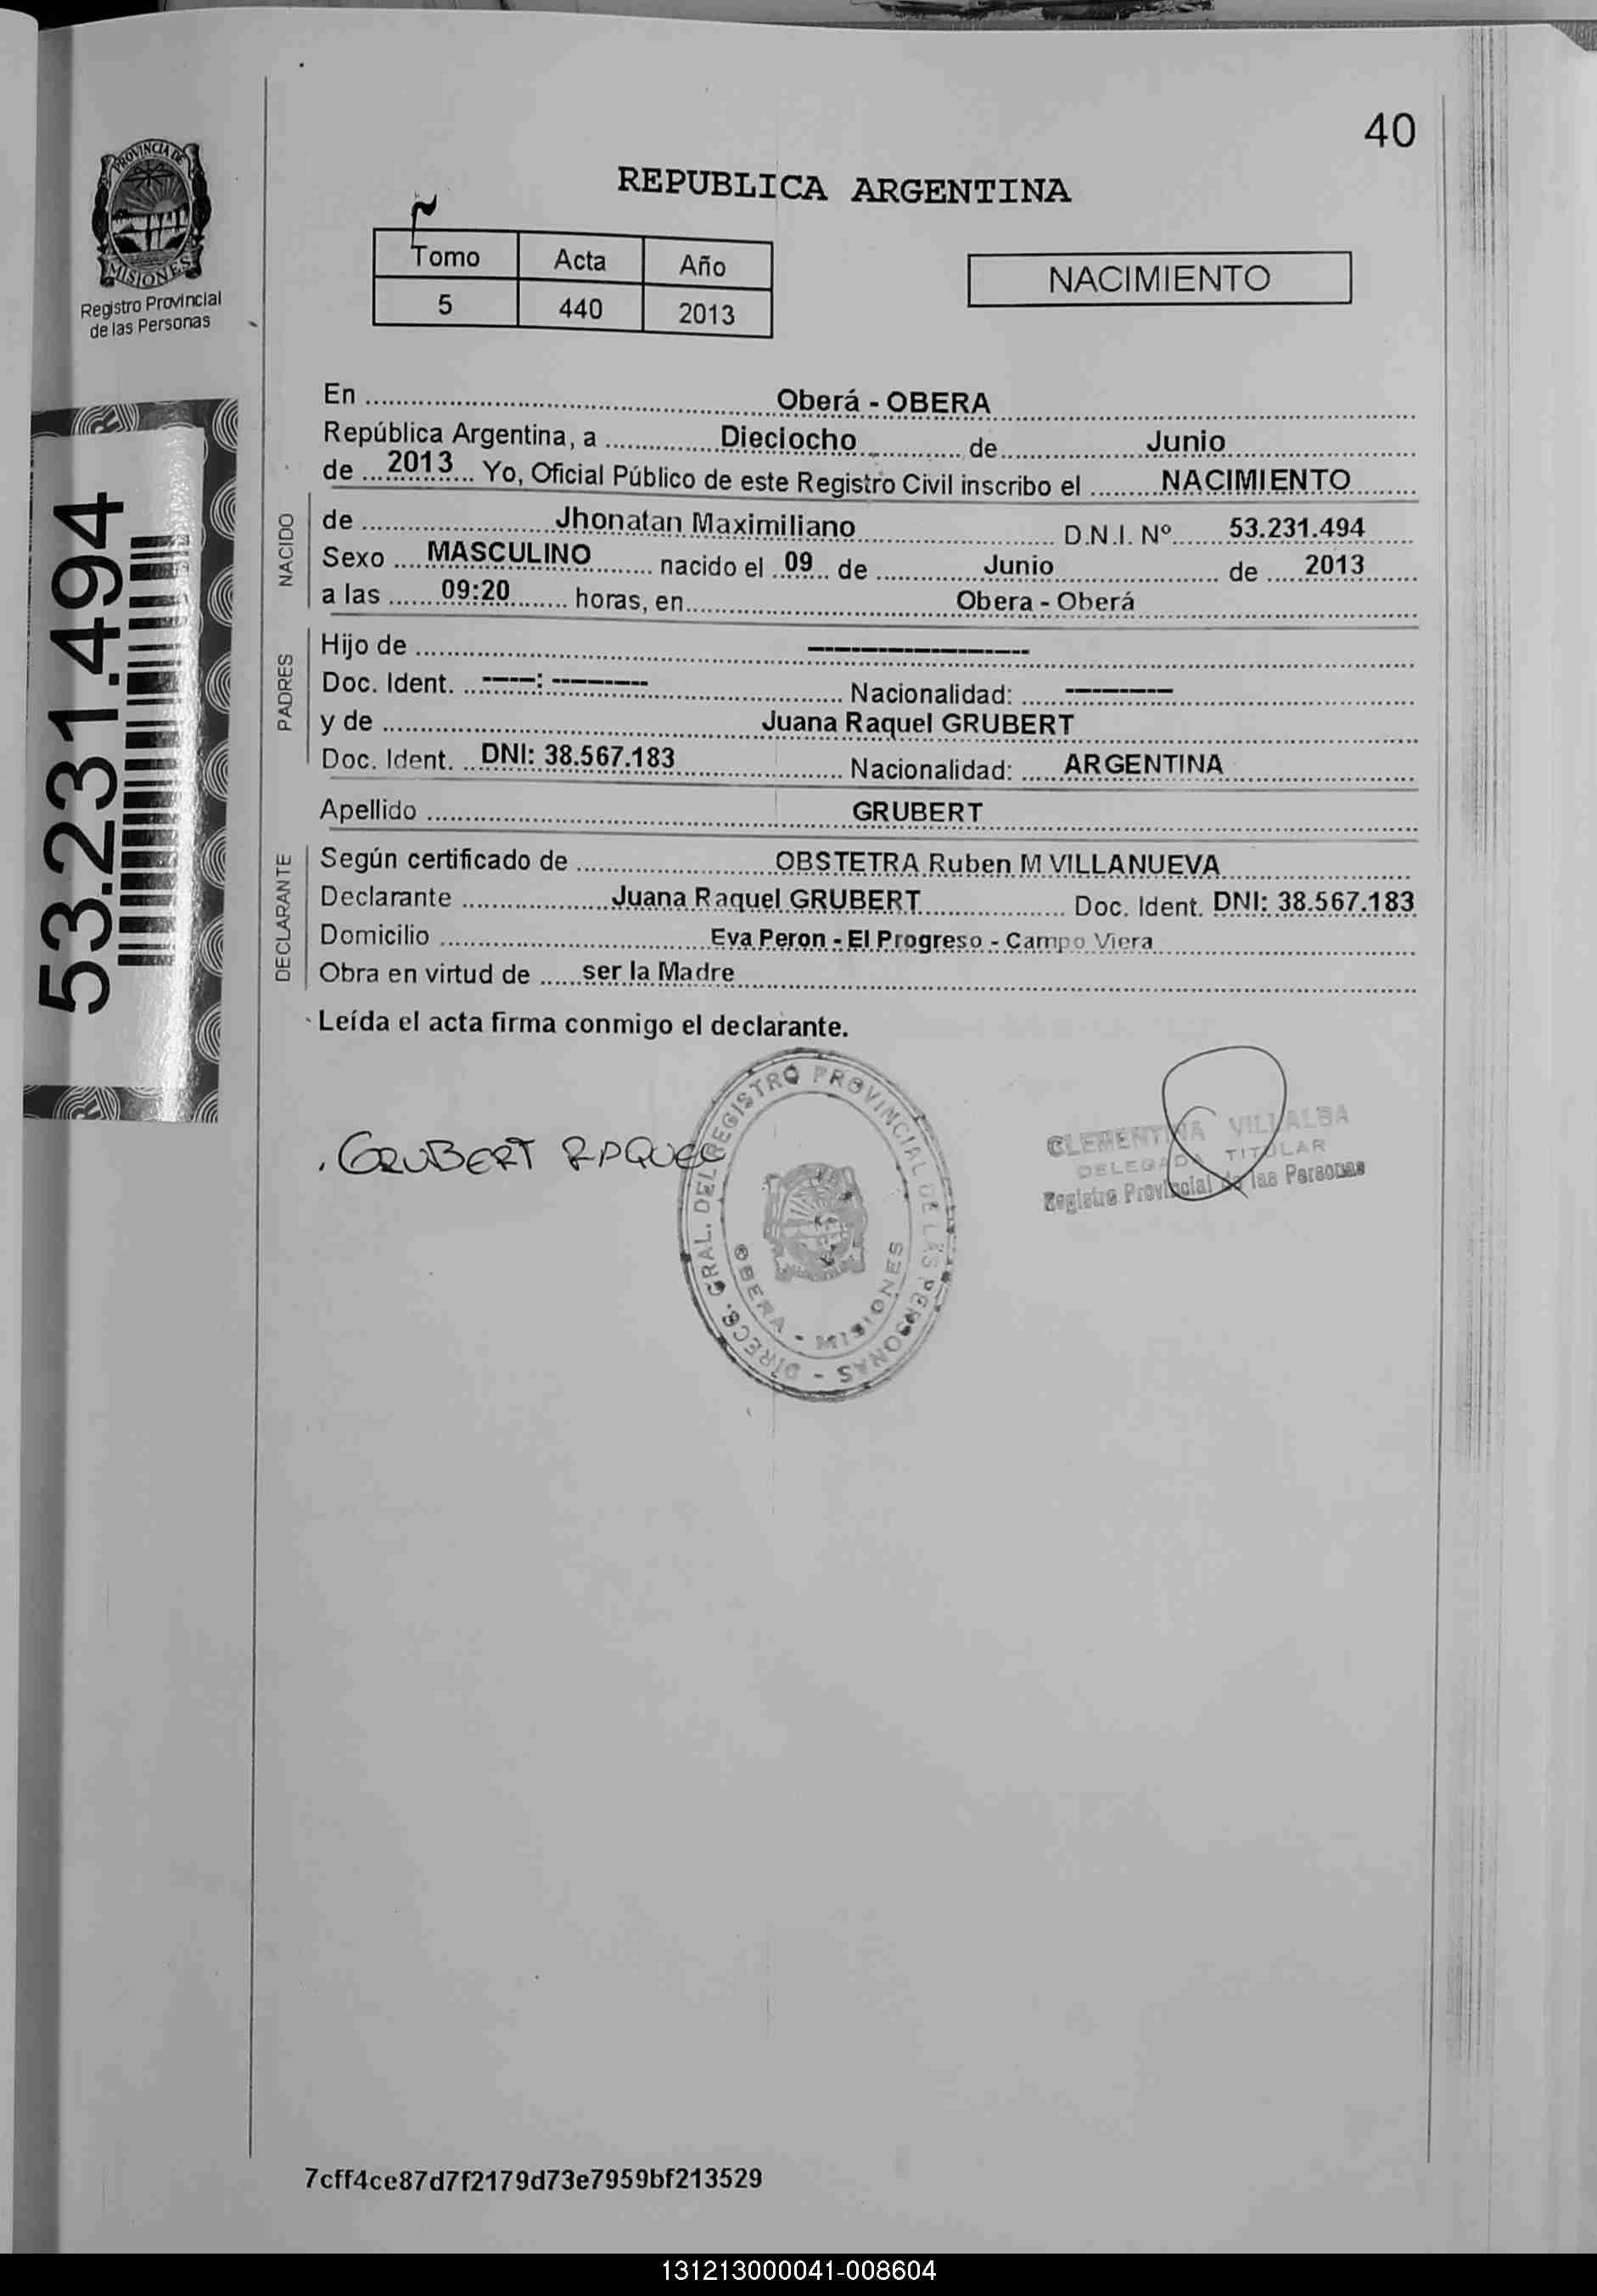 40
PROVINCIA DE
MISIONES
Registro Provincial
de las Personas
REPUBLICA ARGENTINA
Tomo Acta Año
5 440 2013
NACIMIENTO
53.231.494
En Oberá - OBERA
República Argentina, a Dieciocho de Junio
de 2013 Yo, Oficial Público de este Registro Civil inscribo el NACIMIENTO
NACIDO
de Jhonatan Maximiliano D.N.I. Nº 53.231.494
Sexo MASCULINO nacido el 09 de Junio de 2013
a las 09:20 horas, en Obera - Oberá
PADRES
Hijo de --------------------
Doc. Ident. -----: --------- Nacionalidad: ----------
y de Juana Raquel GRUBERT
Doc. Ident. DNI: 38.567.183 Nacionalidad: ARGENTINA
Apellido GRUBERT
DECLARANTE
Según certificado de OBSTETRA Ruben M VILLANUEVA
Declarante Juana Raquel GRUBERT Doc. Ident. DNI: 38.567.183
Domicilio Eva Peron - El Progreso - Campo Viera
Obra en virtud de ser la Madre
Leída el acta firma conmigo el declarante.
GRUBERT RAQUEL
DIRECC. GRAL. DEL REGISTRO PROVINCIAL DE LAS PERSONAS -
OBERA - MISIONES
CLEMENTINA VILLALBA
DELEGADA TITULAR
Registro Provincial de las Personas
7cff4ce87d7f2179d73e7959bf213529
131213000041-008604